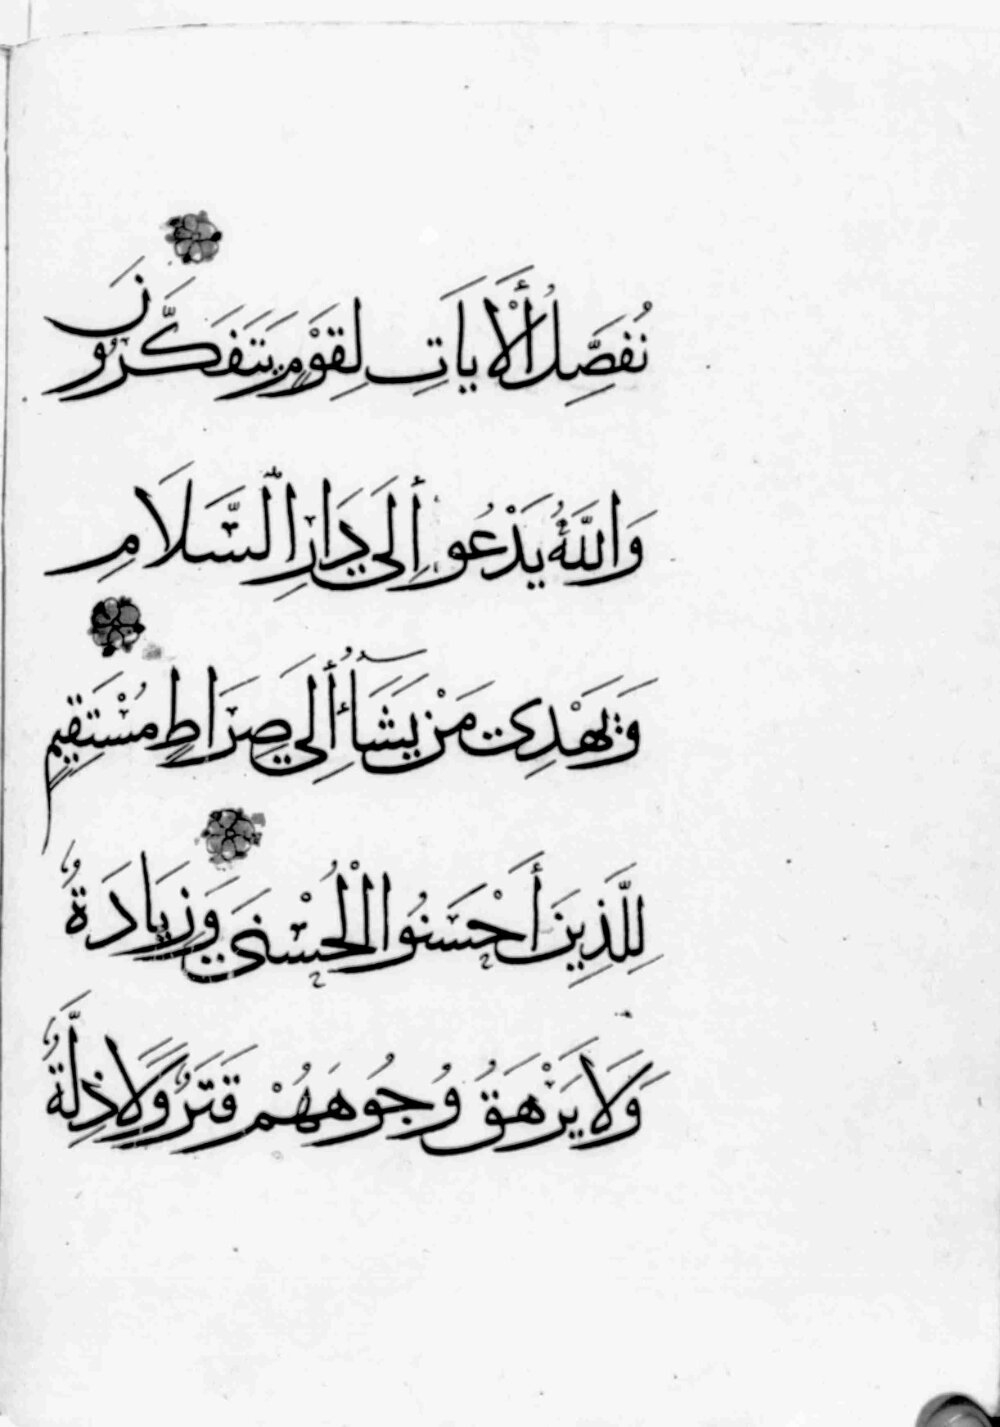 نُفَصِّلُ ٱلْأَيَاتِ لِقَوْمٍ يَتَفَكَّرُونَ
وَاللَّهُ يَدْعُو إِلَى دَارِ السَّلَامِ
وَيَهْدِي مَنْ يَشَآءُ إِلَى صِرَاطٍ مُسْتَقِيمٍ
لِلَّذِينَ أَحْسَنُوا الْحُسْنَى وَزِيَادَةٌ
وَلَا يَرْهَقُ وُجُوهَهُمْ قَتَرٌ وَلَا ذِلَّةٌ